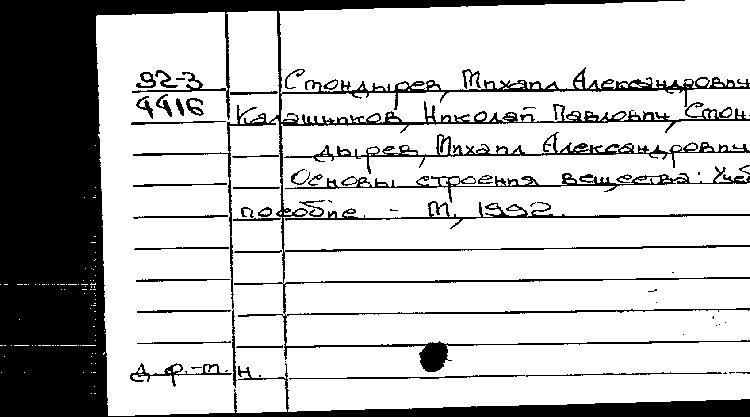 92-3 Стондырев, Михаил Александрович
4416 Калашников, Николай Павлович, Стон-
дырев, Михаил Александрович
Основы строения вещества: Учеб
пособие. - М., 1992.
д.ф.-м.н.